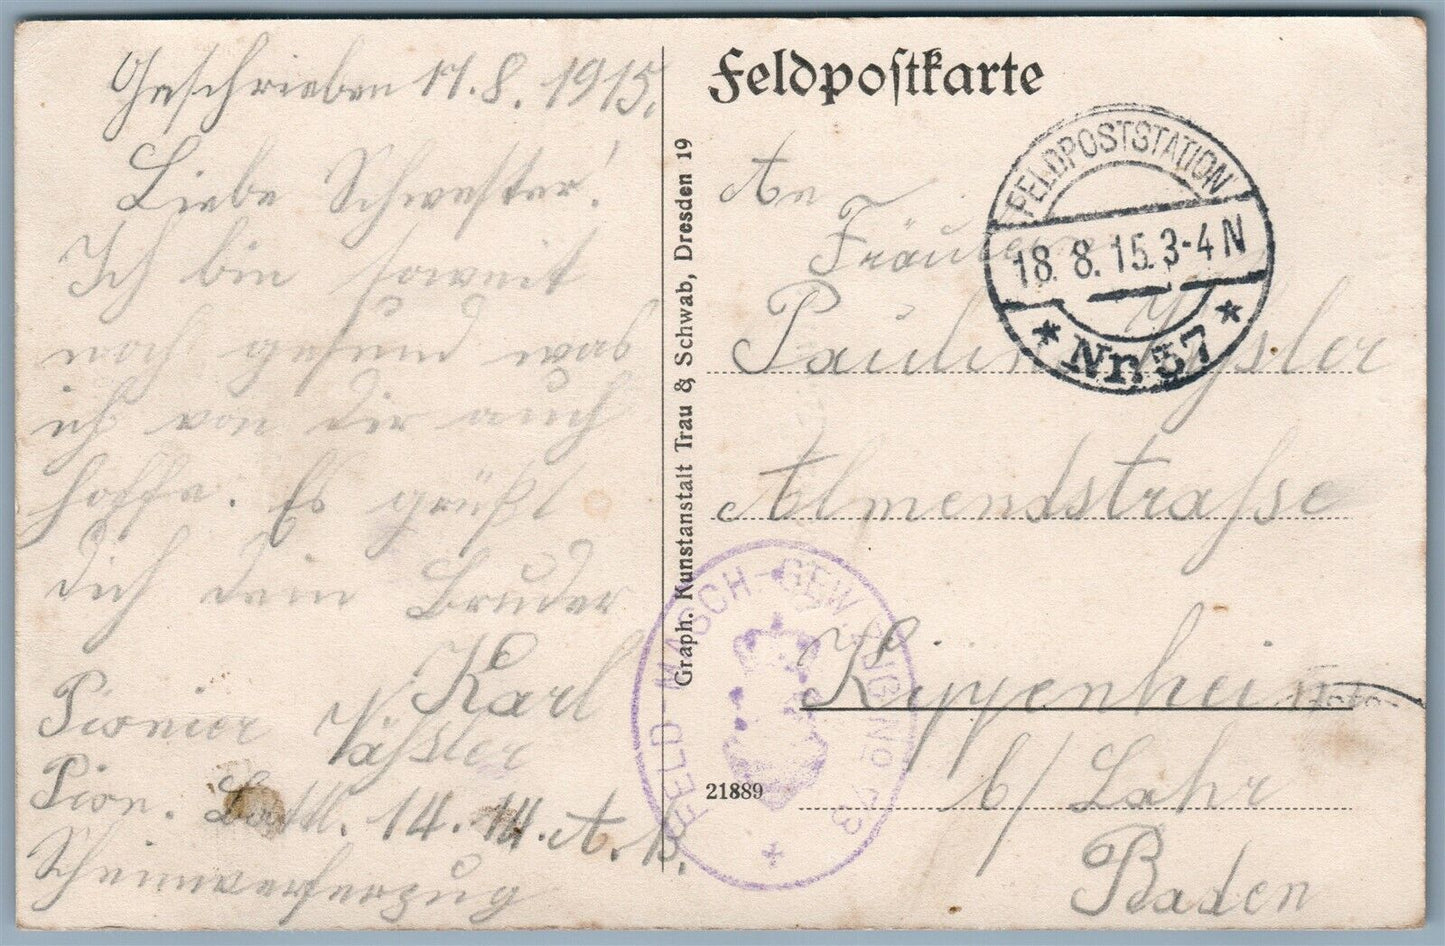 Geschrieben 17.8.1915.
Liebe Schwester!
Ich bin soweit
noch gesund was
ich von dir auch
hoffe. Es grüßt
dich dein Bruder
Karl
Pionier Väßsler
Pion. Battl. 14. 14. A. K.
Scheinwerferzug
Graph. Kunstanstalt Trau & Schwab, Dresden 19
Feldpostkarte
FELDPOSTSTATION
18.8.15.3-4N
* Nr. 57 *
An
Fräulein
Pauline
Almendstrasse
Kippenheim
b/ Lahr
Baden
21889
FELD MASCH-GEW. ZUG No